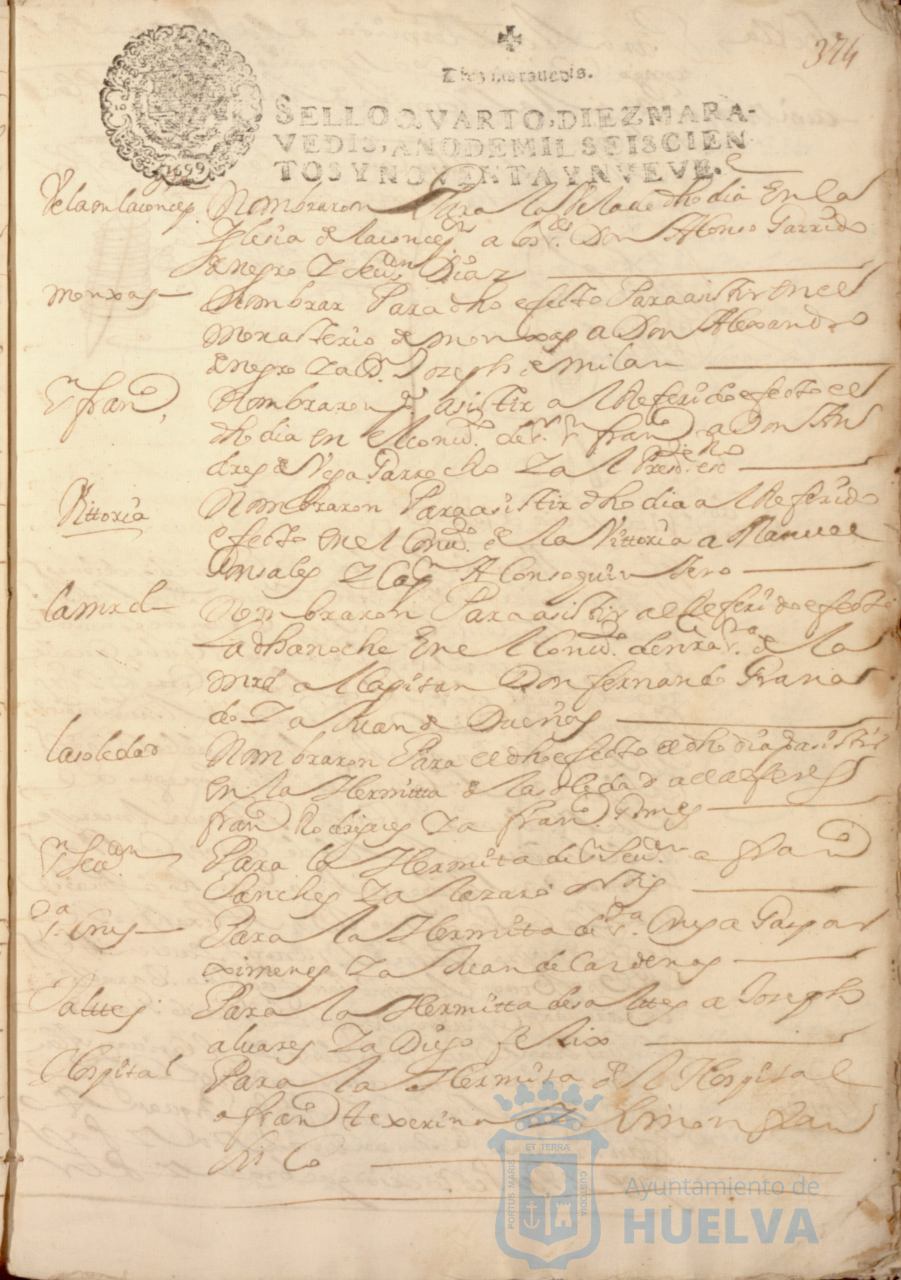 374
Diez marauedis.
SELLO QVARTO, DIEZ MARA-
VEDIS, AÑO DE MIL SEISCIEN-
TOS Y NOVENTA Y NVEVE.
1699
Nombraron Para la dho dia En la
Iglesia de la conce.n a los Don Alonso Garrido
de negro Diaz
monxas
Nombrar Para dho efecto Para asistir en el
Monasterio de monxas a Don Alexandro
de negro Joseph de milan
S.n fran.co
Nombraron asistir al Referido efecto el
dho dia en el Conu.to de s.r s.n fran.co a Don An
dres de Vega Garrocho
Vittoria
Nombraron Para asistir dho dia al Referido
efecto en el Conu.to de la Vittoria a Manuel
Gonsales Alonso quintero
la mrd
Nombraron Para asistir al Referido efecto
la dha noche En el Conu.to de nra s.ra de la
mrd al Capitan Don fernando Grana
do Za Juan de Dueñas
la soledad
Nombraron Para el dho efecto el dho dia asistir
en la Hermitta de la soledad al alferes
fran.co Rodrigues Za fran.co Gomes
S.n Seu.an
Para la Hermita de s.n Seu.an a fran.co
Sanches Za Lazaro Ortis
S.ta Crus
Para la Hermita de s.ta Crus a Gaspar
ximenes Za Juan de Cardenas
Saltes
Para la Hermitta de saltes a Joseph
aluares Za Diego felix
Hospital
Para la Hermita del Hospital
a fran.co texerina Simon fran
sisco
PORTUS MARIS ET TERRA CUSTODIA
Ayuntamiento de
HUELVA